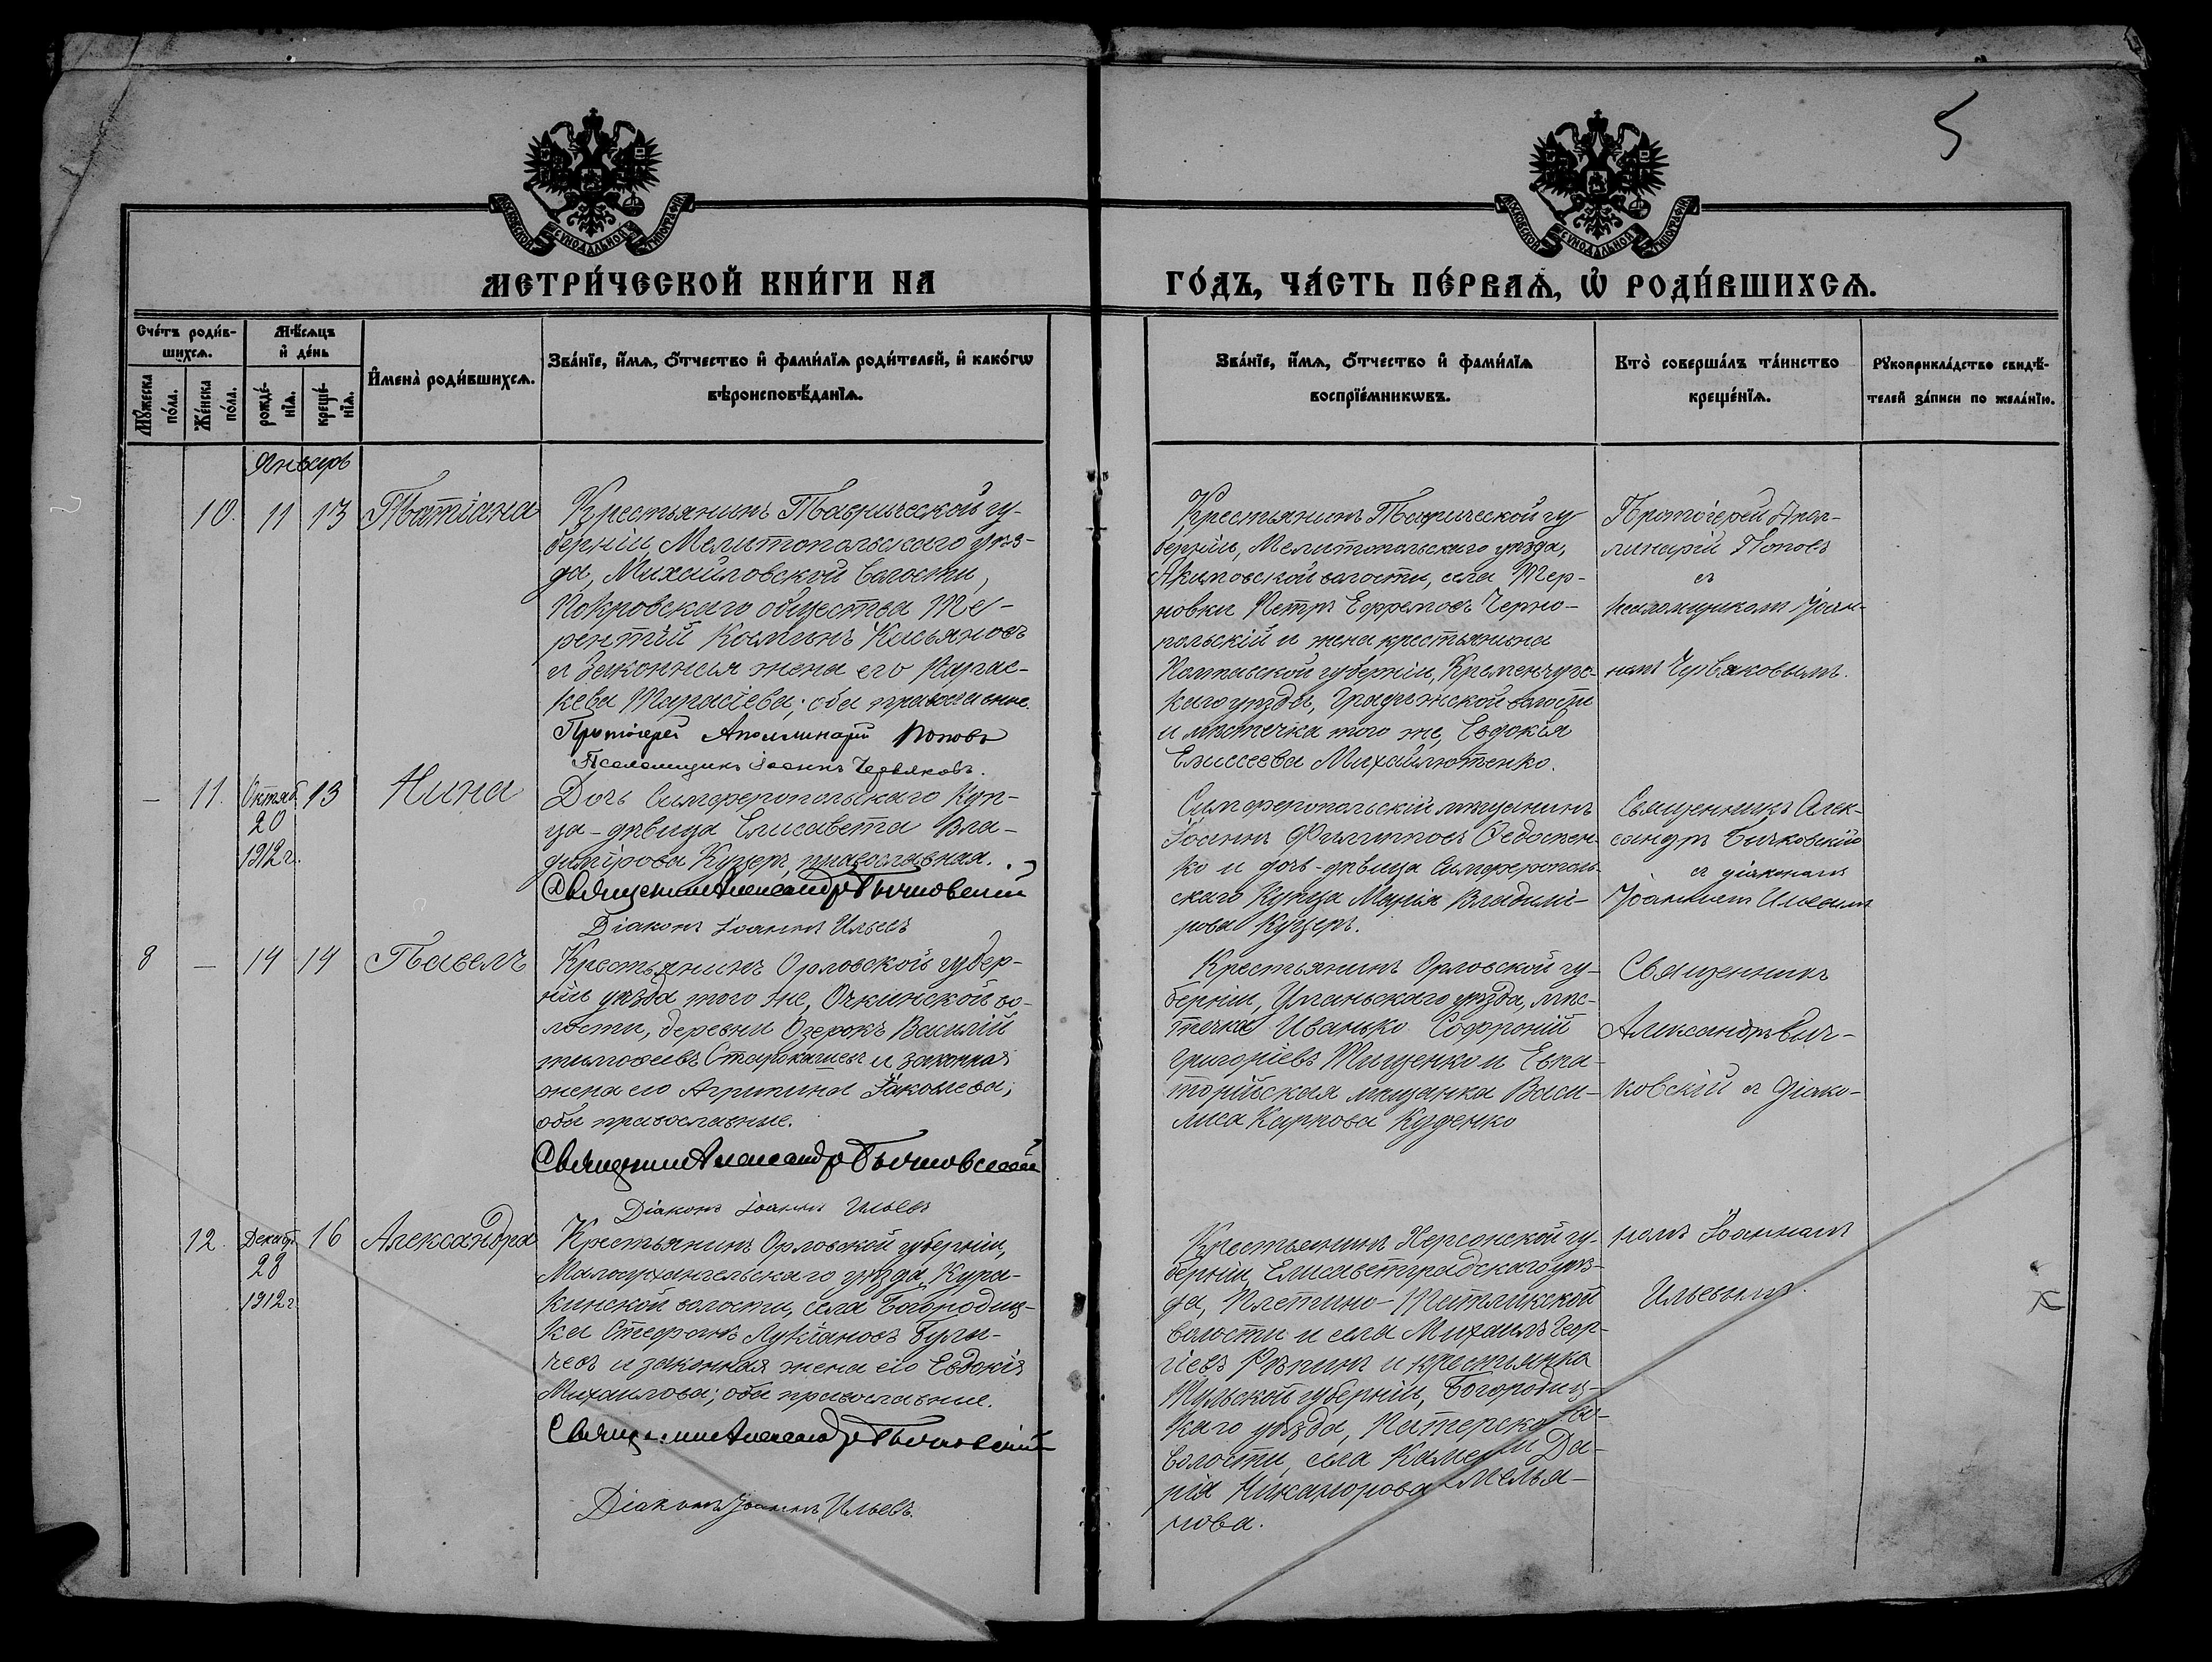 5
МОСКОВСКОЙ СѴНОДАЛЬНОЙ ТИПОГРАФІИ
МОСКОВСКОЙ СѴНОДАЛЬНОЙ ТИПОГРАФІИ
МЕТРИ́ЧЕСКОЙ КНИ́ГИ НА
ГО́ДЪ, ЧА́СТЬ ПЕ́РВАѦ, Ѽ РОДИ́ВШИХСѦ.
Сче́тъ роди́в-
шихсѧ.
Мꙋ́жеска по́ла.
Же́нска по́ла.
Мѣ́сѧцъ
и҆ де́нь
рожде́-
нїѧ.
креще́-
нїѧ.
И҆мена̀ роди́вшихсѧ.
Зва́нїе, и҆́мѧ, ѻ҆́тчество и҆ фами́лїѧ роди́телей, и҆ како́гѡ
вѣроисповѣ́данїѧ.
Зва́нїе, и҆́мѧ, ѻ҆́тчество и҆ фами́лїѧ
воспрїе́мникѡвъ.
Кто̀ соверша́лъ та́инство
креще́нїѧ.
Рꙋкоприкла́дство свидѣ́-
телей за́писи по жела́нїю.
Январь
10. 11 13 Татіана
Крестьянинъ Таврической гу-
берніи, Мелитопольскаго уѣз-
да, Михайловской волости,
Покровскаго общества Те-
рентій Косминъ Касьяновъ
и законная жена его Парас-
кева Тарасіева; оба православные.
Протоіерей Аполлинарій Поповъ
Псаломщикъ Іоаннъ Червяковъ.
Крестьянинъ Таврической гу
берніи, Мелитопольскаго уѣзда,
Акимовской волости, села Тер-
новки Петръ Ефремовъ Черно-
польскій и жена крестьянина
Полтавской губерніи, Кременчугс-
каго уѣзда, Градижской волости
и мѣстечка того же, Евдокія
Елисеева Михайлютенко.
Протоіерей Апол-
линарій Поповъ
съ
псаломщикомъ Іоан-
номъ Червяковымъ.
— 11. Октяб. 13 Нина
20
1912 г.
Дочь Симферопольскаго Куп-
ца - дѣвица Елисавета Вла-
димірова Куцеръ, православная.
Священникъ Александръ Бычковскій
Діаконъ Іоаннъ Ильевъ
Симферопольскій мѣщанинъ
Іоаннъ Филипповъ Федосѣен-
ко и дочь-дѣвица Симферополь-
скаго Купца Марія Владимі-
рова Куцеръ.
Священникъ Алек-
сандръ Бычковскій
съ діакономъ
Іоанномъ Ильевымъ
8 — 14 14 Павелъ
Крестьянинъ Орловской губер-
ніи уѣзда того же, Очкинской во-
лости, деревни Озерокъ Василій
Тимофеевъ и законная
жена его Агриппина Іаковлева;
оба православные.
Священникъ Александръ Бычковскій
Діаконъ Іоаннъ Ильевъ
Крестьянинъ Орловской гу-
берніи, Уманьскаго уѣзда, мѣс-
течка Иванько Софроній
Григоріевъ Тищенко и Евпа-
торійская мѣщанка Васи-
лиса Карпова Куценко
Священникъ
Александръ Быч-
ковскій съ діако-
номъ Іоанномъ
Ильевымъ.
12. Декабр. 16 Александра
28
1912 г
Крестьянинъ Орловской губерніи,
Малоархангельскаго уѣзда, Кура-
кинской волости, села Богородиц-
ка Стефанъ Лукіановъ Булы-
чевъ и законная жена его Евдокія
Михаилова; оба православные.
Священникъ Александръ Бычковскій
Діаконъ Іоаннъ Ильевъ.
Крестьянинъ Херсонской гу-
берніи, Елисаветградскаго уѣз-
да, Плетино-Ташлыкской
волости и села Михаилъ Геор-
гіевъ Рѣпинъ и крестьянка
Тульской губерніи, Богородиц-
каго уѣзда,
волости, села Да-
рія Никанорова Мелья-
нова.